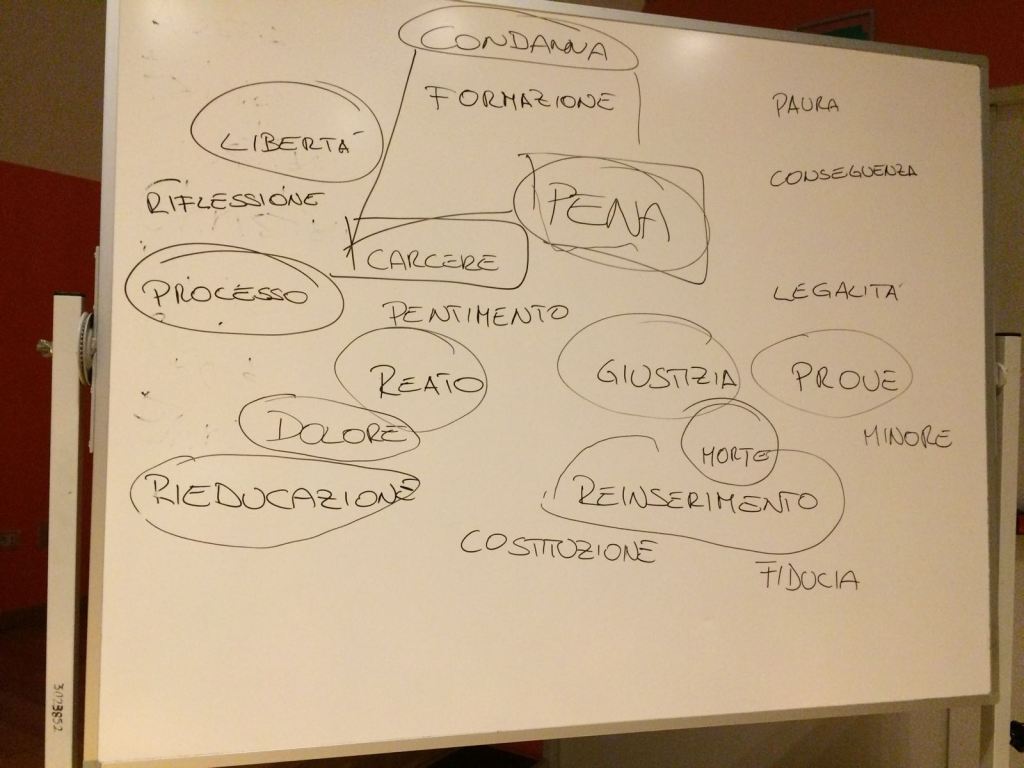 CONDANNA
FORMAZIONE
PAURA
LIBERTÁ
CONSEGUENZA
RIFLESSIONE
PENA
CARCERE
PROCESSO
LEGALITÁ
PENTIMENTO
REATO
GIUSTIZIA
PROVE
DOLORE
MINORE
MORTE
RIEDUCAZIONE
REINSERIMENTO
COSTITUZIONE
FIDUCIA